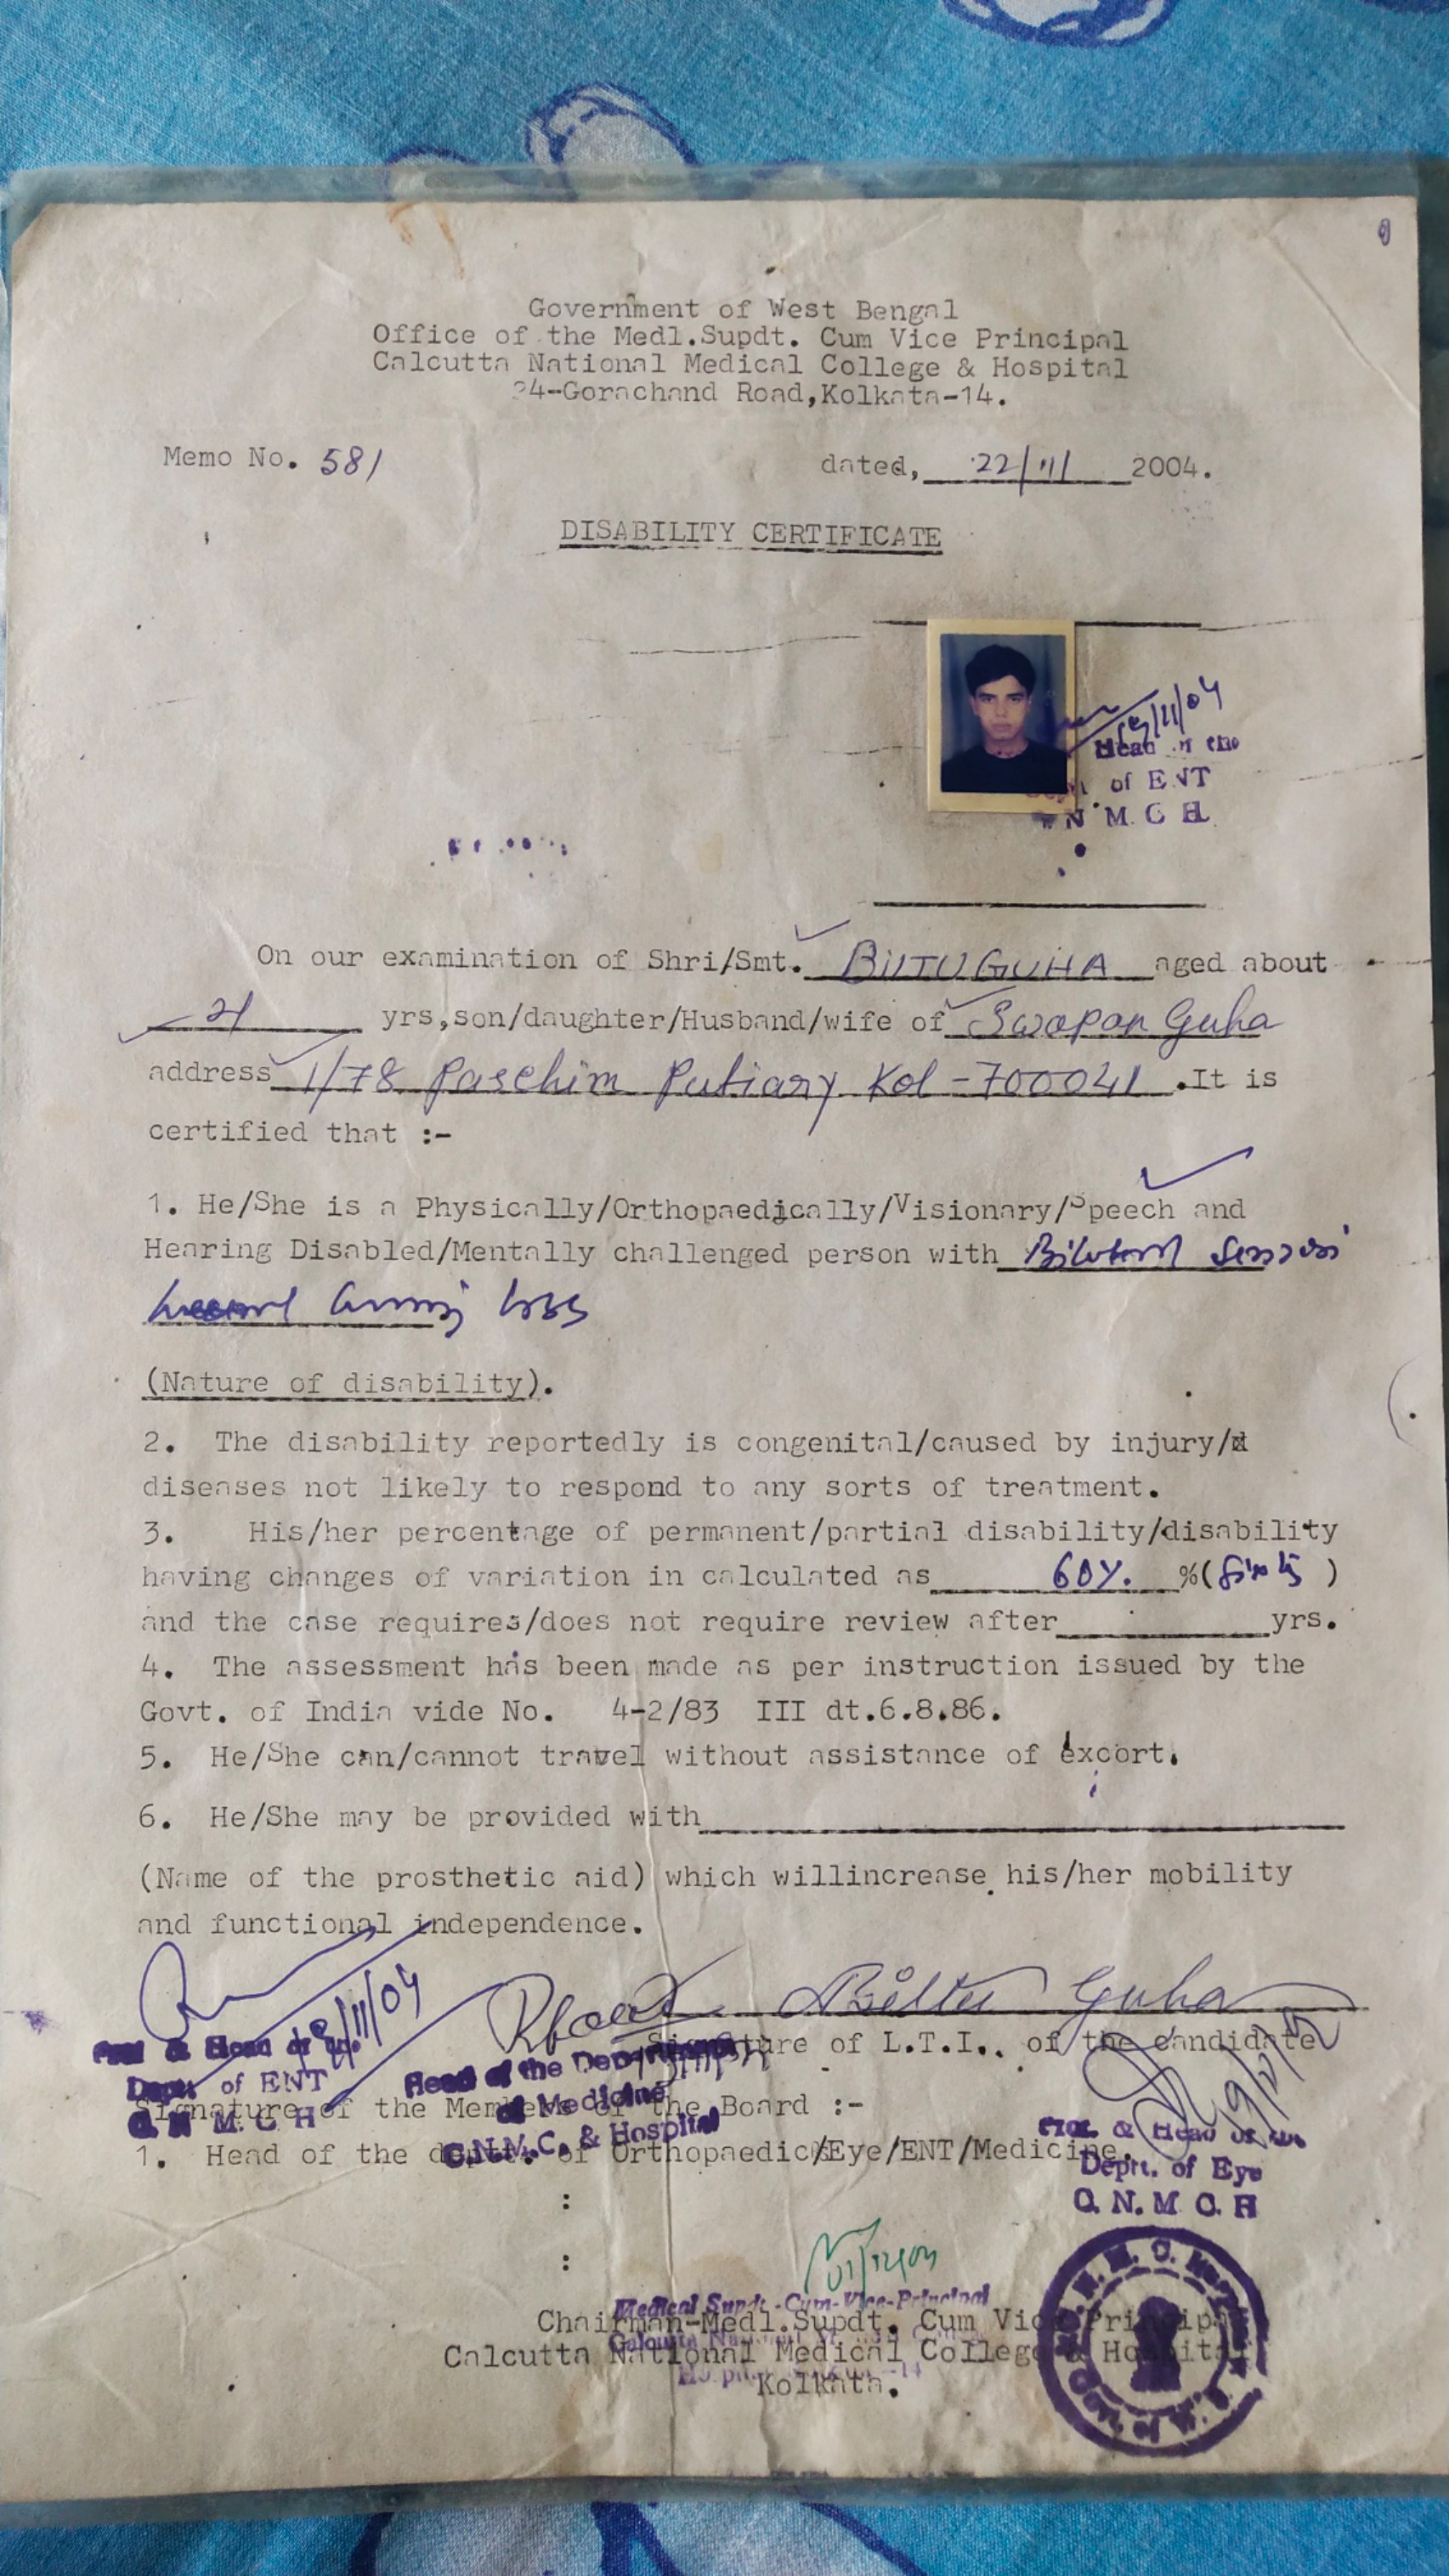 Government of West Bengal
Office of the Medl.Supdt. Cum Vice Principal
Calcutta National Medical College & Hospital
24-Gorachand Road,Kolkata-14.
Memo No. 581 dated, 22/11/ 2004.
DISABILITY CERTIFICATE
/11/04
Head of the
of ENT
N M. C H.
On our examination of Shri/Smt. BILTU GUHA aged about
21 yrs,son/daughter/Husband/wife of Swapan Guha
address 1/78 Paschim Putiary Kol-700041 .It is
certified that :-
1. He/She is a Physically/Orthopaedically/Visionary/Speech and
Hearing Disabled/Mentally challenged person with Bilateral Sensori
hearing loss
(Nature of disability).
2. The disability reportedly is congenital/caused by injury/
diseases not likely to respond to any sorts of treatment.
3. His/her percentage of permanent/partial disability/disability
having changes of variation in calculated as 60%. %(Sixty )
and the case requires/does not require review after yrs.
4. The assessment has been made as per instruction issued by the
Govt. of India vide No. 4-2/83 III dt.6.8.86.
5. He/She can/cannot travel without assistance of excort.
6. He/She may be provided with
(Name of the prosthetic aid) which willincrease his/her mobility
and functional independence.
/11/04 Biltu Guha
Signature of L.T.I.. of the candidate
& Head of the
Deptt of ENT
C N M. C H
Head of the Department
of Medicine
C.N.M.C. & Hospital
Signature of the Members of the Board :-
1. Head of the deptt. of Orthopaedics/Eye/ENT/Medicine.
Prof. & Head of the
Deptt. of Eye
C. N. M. C. H
:
:
Medical Supdt.-Cum-Vice-Principal
Chairman-Medl.Supdt. Cum Vice Principal
Calcutta National Medical College & Hospital
Kolkata.